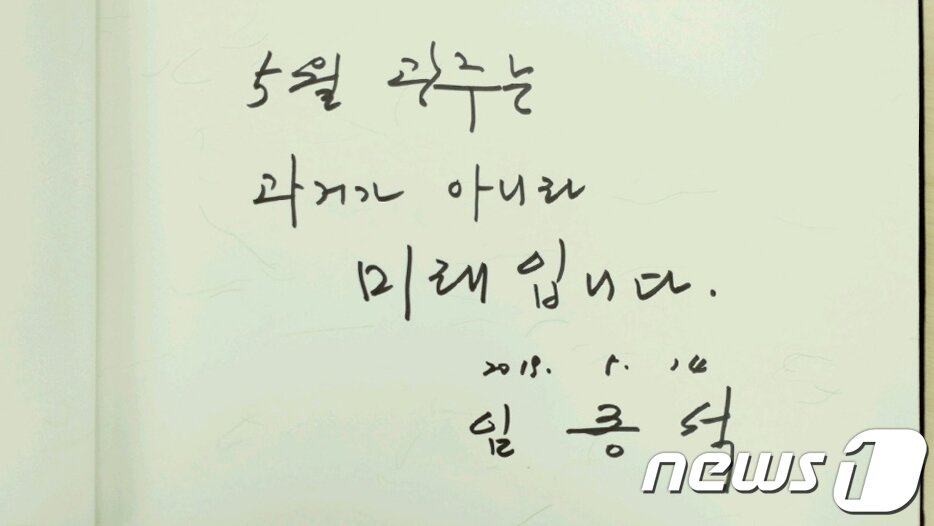 5월 광주는
과거가 아니라
미래입니다.
2019. 5. 14
임종석
news1